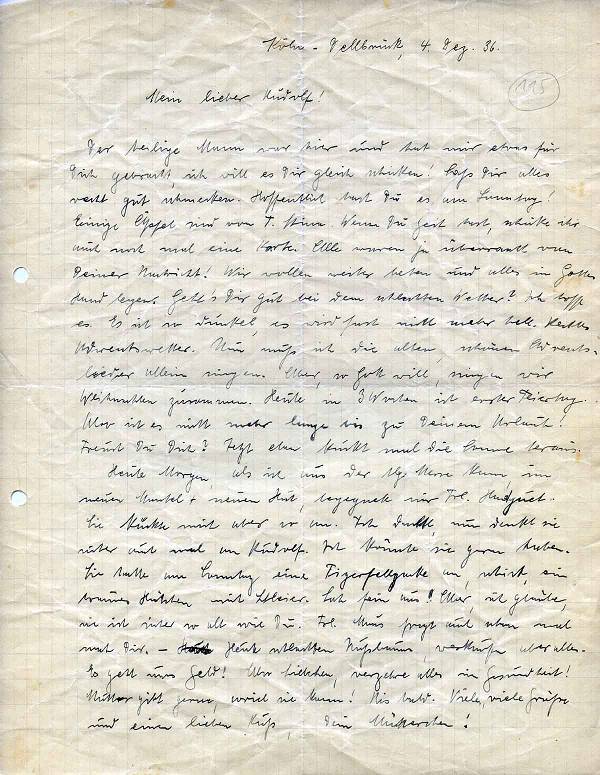 Köln - Dellbrück, 4. Dez. 36.
115
Mein lieber Rudolf!
Der heilige Mann war hier und hat mir etwas für
Dich gebracht, ich will es Dir gleich schicken! Lass Dir alles
recht gut schmecken. Hoffentlich hast Du es am Sonntag!
Einige Äpfel sind von T. Wenn Du Zeit hast, schicke ihr
auch noch mal eine Karte. Alle waren ja überrascht von
Deiner Nachricht! Wir wollen weiter beten und alles in Gottes
Hand legen. Geht's Dir gut bei dem schlechten Wetter? Ich hoff
es. Es ist so dunkel, es wird fast nicht mehr hell. Rechtes
Adventswetter. Nun muß ich die alten, schönen Advents-
lieder allein singen. Aber, so Gott will, singen wir
Weihnachten zusammen. Heute in 3 Wochen ist erster Feiertag.
Also ist es nicht mehr lange bis zu Deinem Urlaub!
Freust Du Dich? Jetzt eben kuckt mal die Sonne heraus.
Heute Morgen, als ich aus der hlg. Messe kam, im
neuen Mantel + neuen Hut, begegnete mir Frl.
Sie kuckte mich aber so an. Ich dachte, nun denkt sie
sicher auch mal an Rudolf. Ich könnte sie gern haben.
Sie hatte am Sonntag eine Tigerfelljacke an, schick, ein
braunes Hütchen mit Schleier. Sah fein aus! Aber, ich glaube,
sie ist sicher so alt wie Du. Frl. fragt auch eben mal
nach Dir. - Heute schlachten Nußbaums, verkaufe aber alles.
Es geht ums Geld! Also Liebchen, verzehre alles in Gesundheit!
Mutter gibt gerne, soviel sie kann! Bis bald. Viele, viele Grüße
und einen lieben Kuß, Dein Mütterchen!